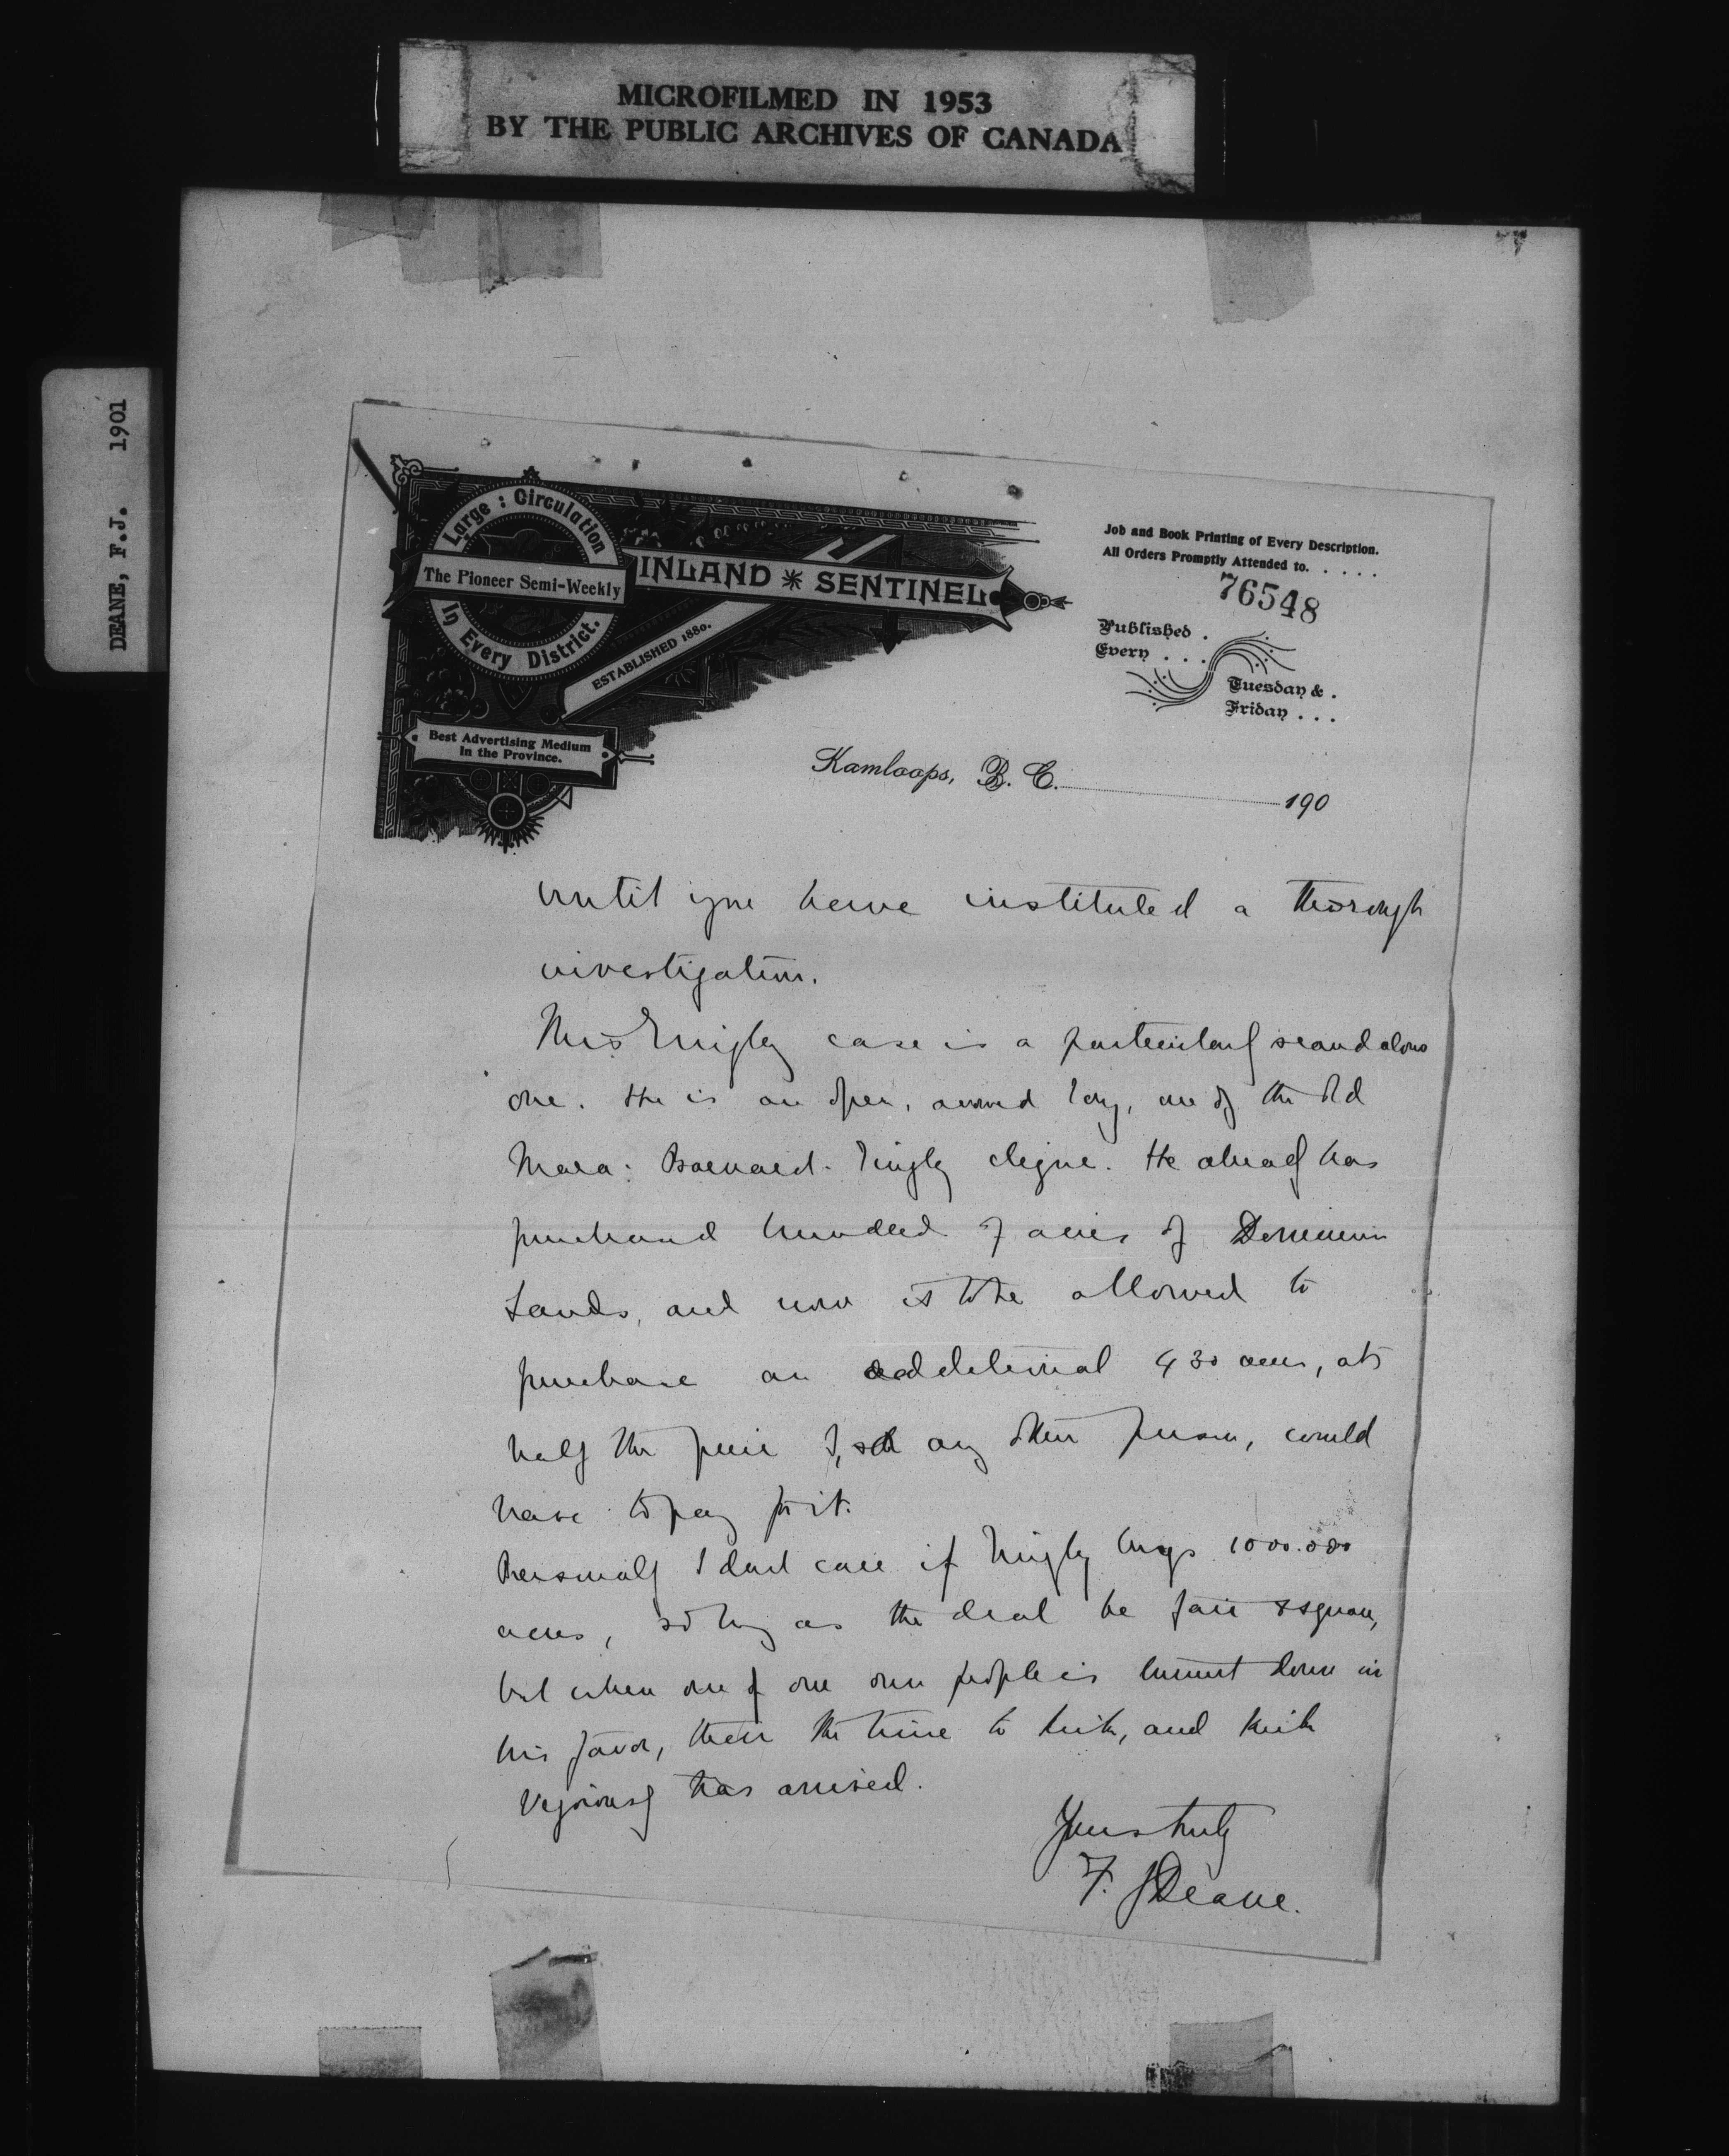 MICROFILMED IN 1953
BY THE PUBLIC ARCHIVES OF CANADA
DEANE, F.J. 1901
Large : Circulation
The Pioneer Semi-Weekly
In Every District.
INLAND SENTINEL
ESTABLISHED 1880.
Best Advertising Medium
In the Province.
Job and Book Printing of Every Description.
All Orders Promptly Attended to. . . . .
76548
Published .
Every . . .
Tuesday & .
Friday . . .
Kamloops, B. C. 190
until you have instituted a thorough
investigation.
This Tingley case is a particularly scandalous
one. He is an open, avowed Tory, one of the old
Mara - Barnard - Tingley clique. He already has
purchased hundred of acres of Dominion
Lands, and now is to be allowed to
purchase an additional 430 acres, at
half the price I, or any other person, could
have to pay for it.
Personally I don't care if Tingley buys 1000.000
acres, so long as the deal be fair & square,
but when one of our own people is turned down in
his favor, then the time to kick, and kick
vigorously has arrived.
Yours truly
F. J Deane.